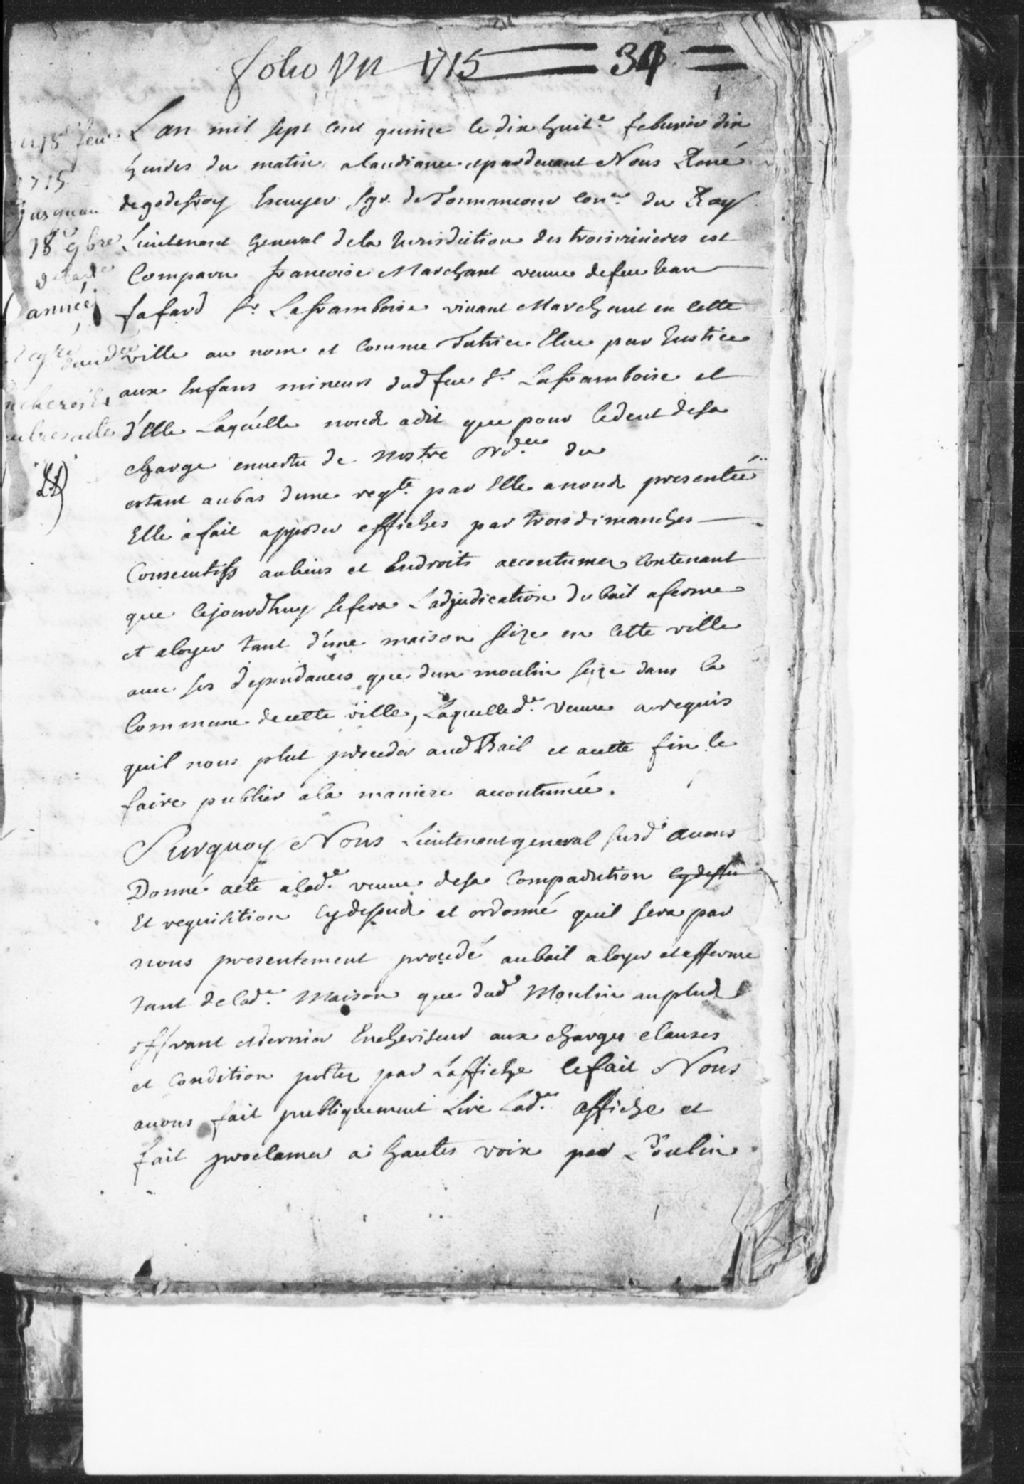 folio Vn 1715 34
Lan mil sept cent quinze le dix huit.e feburier dix
heures du matin alaudiance et pardevant Nous René
degodefroy Escuyer sgr. de Tonnancour Con.er du Roy
Lieutenant General dela Jurisdiction des troisrivieres est
Comparu francoise Marchant veuve defeu Jean
fafard Sr. Laframboise vivant Marchant en cette
ville au nom et comme Tutrice Elue par Justice
aux Enfans mineurs dud feu Sr. Laframboise et
d'Elle Laquelle nous adit que pour ledeut desa
charge en vertu de nostre ord.ce du
estant aubas dune reqte. par Elle anous presentée
Elle a fait apposer affiches par trois dimanches
Consecutifs aulieux et Endroits accoutumez contenant
que cejourdhuy sefera L'adjudication du bail aferme
et aloyer tant d'une maison size en cette ville
avec ses dépendances que dun moulin size dans la
Commune de cette ville, Laquelled.e veuve a requis
quil nous plut proceder aud Bail et acette fin le
faire publier ala maniere accoutumée.
Surquoy Nous Lieutenant general susd. avons
Donné acte alad.e veuve desa Comparution cydessus
Et requisition cydessus et ordonné quil sera par
nous presentement procédé aubail aloyer et afferme
tant de lad.e Maison que dud Moulin auplus
offrant et dernier Encheriseur aux charges clauses
et condition portez par L'affiche cefait Nous
avons fait publiquement Lire Lad.e affiche et
fait proclamer a hautes voix par Poulin
1715
jusquau
18e 9bre
de lad.e
année